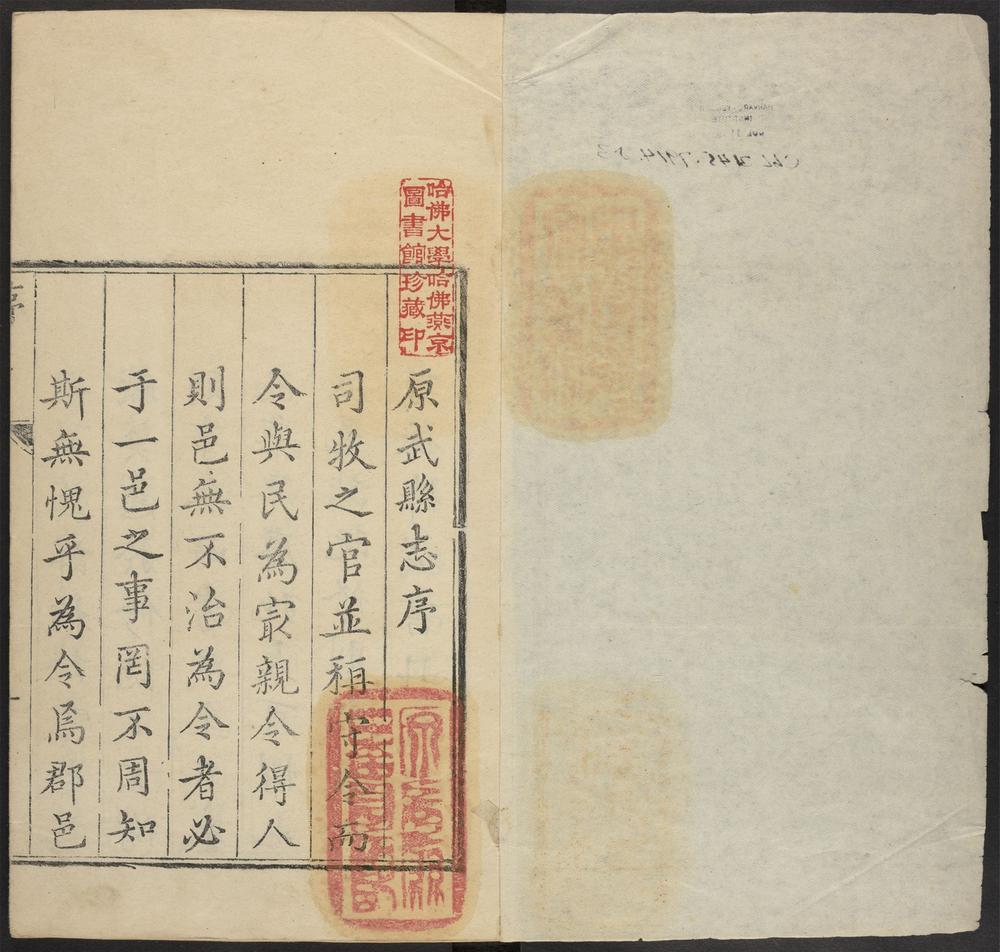 原武縣志序
司牧之官並稱守令而
令與民為㝡親令得人
則邑無不治為令者必
于一邑之事罔不周知
斯無愧乎為令焉郡邑
哈佛大學哈佛燕京
圖書館珍藏印